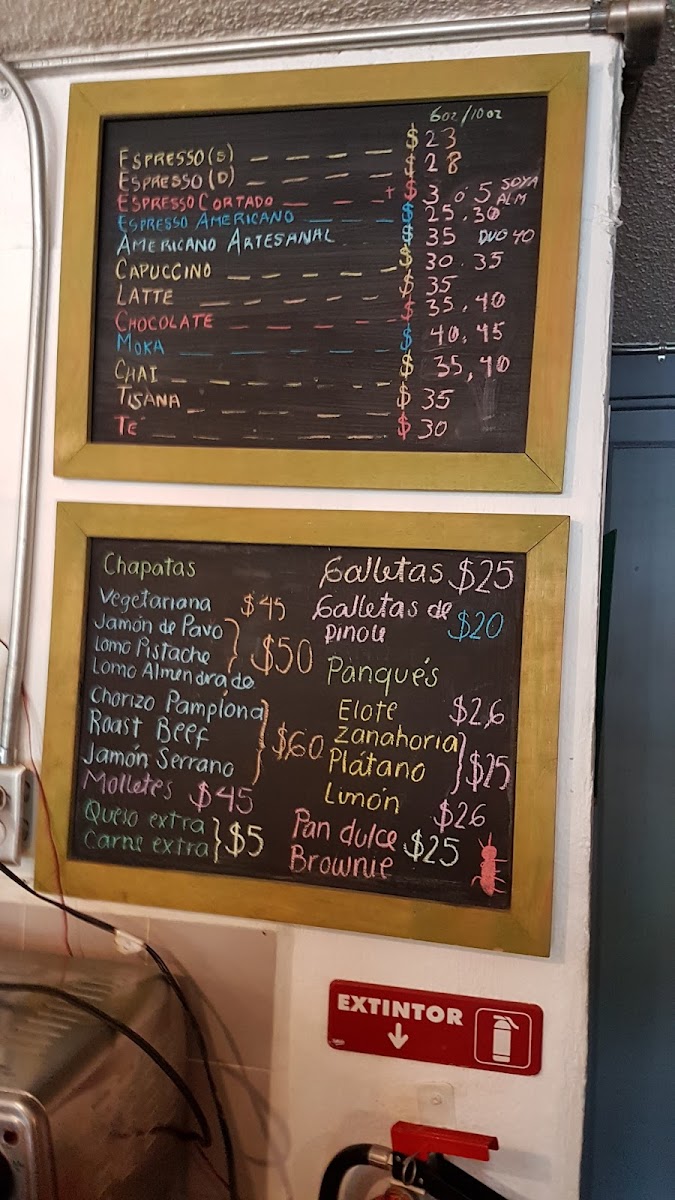 6oz/10oz
ESPRESSO(S) $ 23
ESPRESSO(D) $ 28
ESPRESSO CORTADO + $ 3 ó 5 SOYA ALM
ESPRESSO AMERICANO $ 25.30
AMERICANO ARTESANAL $ 35 DUO 40
CAPUCCINO $ 30.35
LATTE $ 35
CHOCOLATE $ 35.40
MOKA $ 40.45
CHAI $ 35,40
TISANA $ 35
TE $ 30
Chapatas
Vegetariana $45
Jamón de Pavo
Lomo Pistache $50
Lomo Almendrado
Chorizo Pamplona
Roast Beef $60
Jamón Serrano
Molletes $45
Queso extra
Carne extra $5
Galletas $25
Galletas de
pinole $20
Panqués
Elote $26
Zanahoria
Plátano $25
Limón $26
Pan dulce
Brownie $25
EXTINTOR